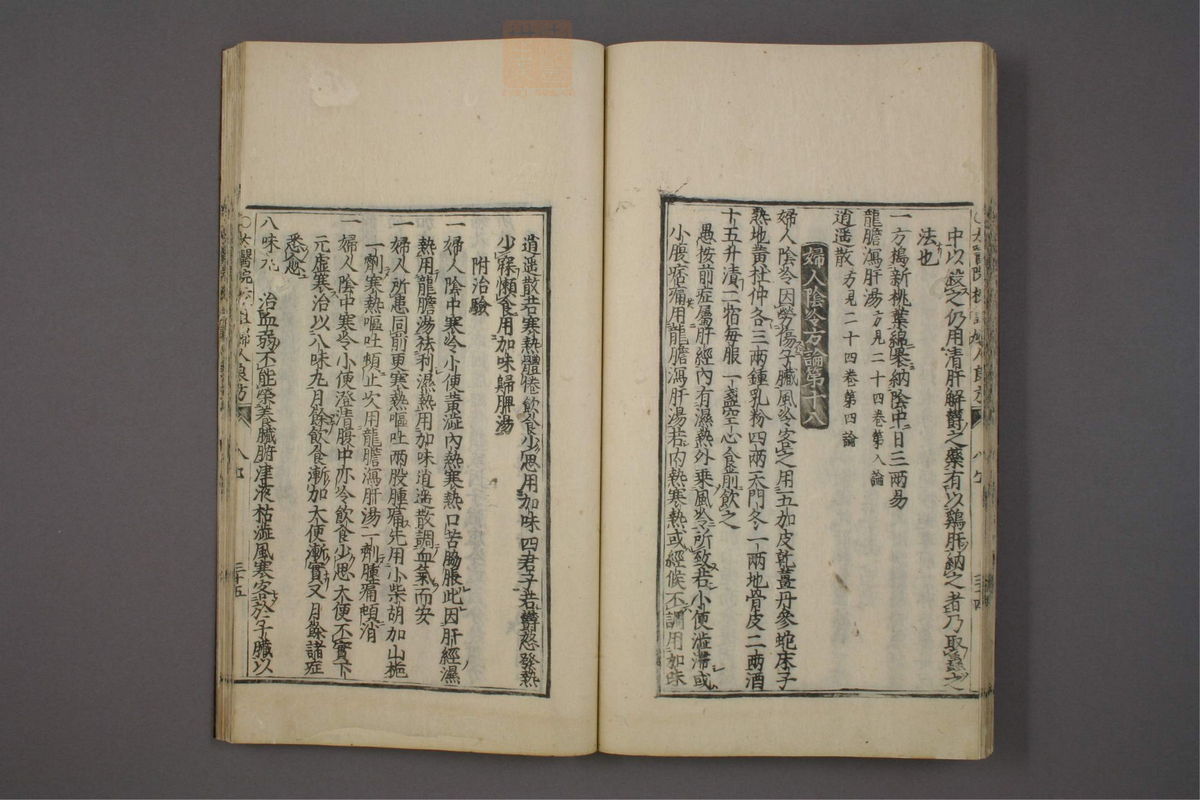 中以殺之仍用清肝解鬱之藥有以鷄肝納之者乃取蟲之
法也
一方搗新桃葉綿裹納陰中日三兩易
龍膽瀉肝湯方見二十四卷第八論
逍遥散方見二十四卷第四論
婦人陰冷方論第十八
婦人陰冷因勞傷子臟風冷客之用五加皮乾薑丹參蛇床子
熟地黄杜仲各三兩鍾乳粉四兩天門冬一兩地骨皮二兩酒
十五升漬二宿每服一盞空心食前飲之
愚按前症屬肝經内有濕熱外乘風冷所致若小便澁滯或
小腹痞痛用龍膽瀉肝湯若内熱寒熱或經候不調用加味
逍遥散若寒熱體倦飲食少思用加味四君子若鬱怒發熱
少寐懶食用加味歸脾湯
附治驗
一婦人陰中寒冷小便黄澁内熱寒熱口苦脇脹此因肝經濕
熱用龍膽湯祛利濕熱用加味逍遥散調血氣而安
一婦人所患同前更寒熱嘔吐兩股腫痛先用小柴胡加山梔
一劑寒熱嘔吐頓止次用龍膽瀉肝湯二劑腫痛頓消
一婦人陰中寒冷小便澄清腹中亦冷飲食少思大便不實下
元虚寒治以八味丸月餘飲食漸加大便漸實又月餘諸症
悉愈
八味丸 治血弱不能榮養臟腑津液枯澁風寒客於子臟以
〇太醫院 婦人良方 三十五